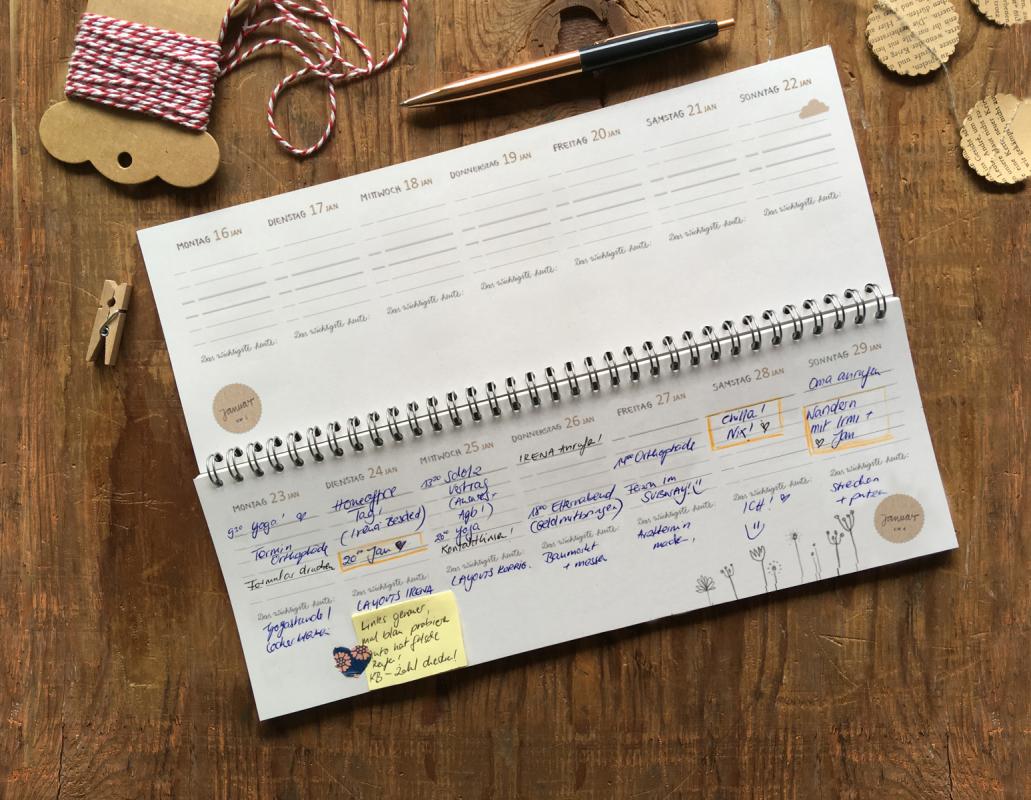 MONTAG 16 JAN
DIENSTAG 17 JAN
MITTWOCH 18 JAN
DONNERSTAG 19 JAN
FREITAG 20 JAN
SAMSTAG 21 JAN
SONNTAG 22 JAN
Das wichtigste heute:
Das wichtigste heute:
Das wichtigste heute:
Das wichtigste heute:
Das wichtigste heute:
Das wichtigste heute:
Das wichtigste heute:
Januar
MONTAG 23 JAN
9:30 Yoga!
Termin
Orthopäde
Formular drucken
Das wichtigste heute:
Yogastunde!
DIENSTAG 24 JAN
Homeoffice
Tag!
(Irena Besuch)
20:00 Jan
Das wichtigste heute:
LAYOUTS IRENA
Links
mal blau probieren
Auto hat
KB - Zahl
MITTWOCH 25 JAN
Vertrag
Agb!)
20:00 Yoga
Kontaktlinsen!
Das wichtigste heute:
LAYOUTS KORRIG.
DONNERSTAG 26 JAN
IRENA Anrufen!
18:00 Elternabend
(Geld mitbringen)
Das wichtigste heute:
Baumarkt
+ messen
FREITAG 27 JAN
14:00 Orthopäde
Essen im
SUBWAY!
Das wichtigste heute:
Arzttermin
SAMSTAG 28 JAN
Chilln!
Nix!
Das wichtigste heute:
ICH!
SONNTAG 29 JAN
Oma anrufen
Wandern
mit Irmi +
Jan
Das wichtigste heute:
streichen
+ putzen
Januar